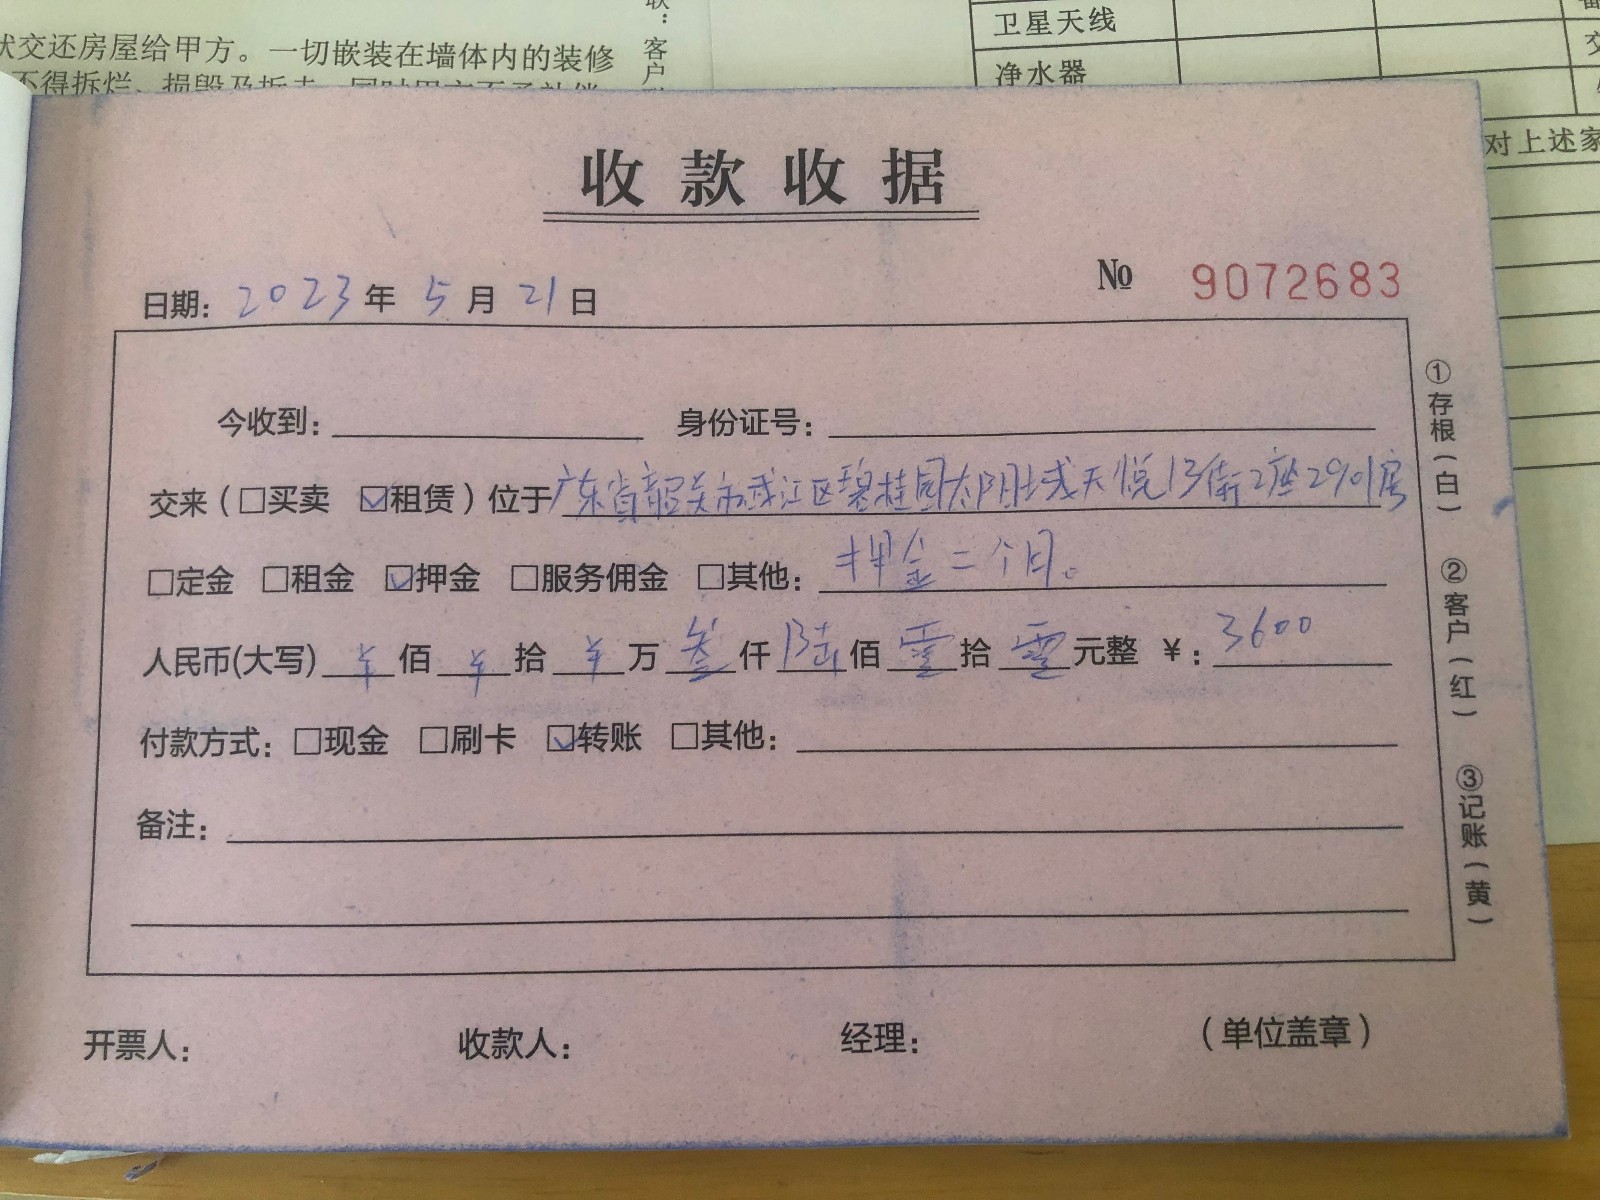 状交还房屋给甲方。一切嵌装在墙体内的装修
不得拆烂、损毁及拆走,同时甲方不予补偿
联：客户
卫星天线
净水器
对上述家
收款收据
No 9072683
日期：2023年5月21日
今收到： 身份证号：
交来（□买卖 ☑租赁）位于广东省韶关市武江区碧桂园太阳城天悦13街2座2901房
□定金 □租金 ☑押金 □服务佣金 □其他：押金二个月。
人民币(大写) ¥ 佰 ¥ 拾 ¥ 万 叁 仟 陆 佰 零 拾 零 元整 ¥：3600
付款方式：□现金 □刷卡 ☑转账 □其他：
备注：
开票人： 收款人： 经理： （单位盖章）
①存根（白） ②客户（红） ③记账（黄）